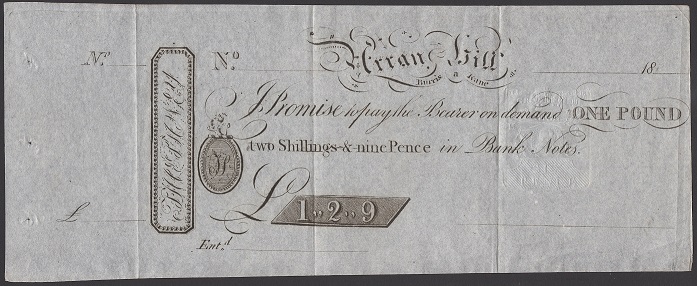 N.º
Nº
Arran Hill
18
I Promise to pay the Bearer on demand ONE POUND
two Shillings & nine Pence in Bank Notes.
£
£ 1 ,, 2 ,, 9
Ent.d